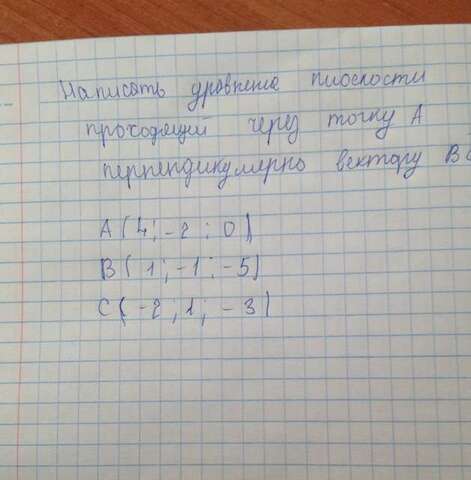 Написать уравнение плоскости
проходящий через точку А
перпендикулярно вектору ВС
А(4;-2;0)
В(1;-1;-5)
С(-2;1;-3)